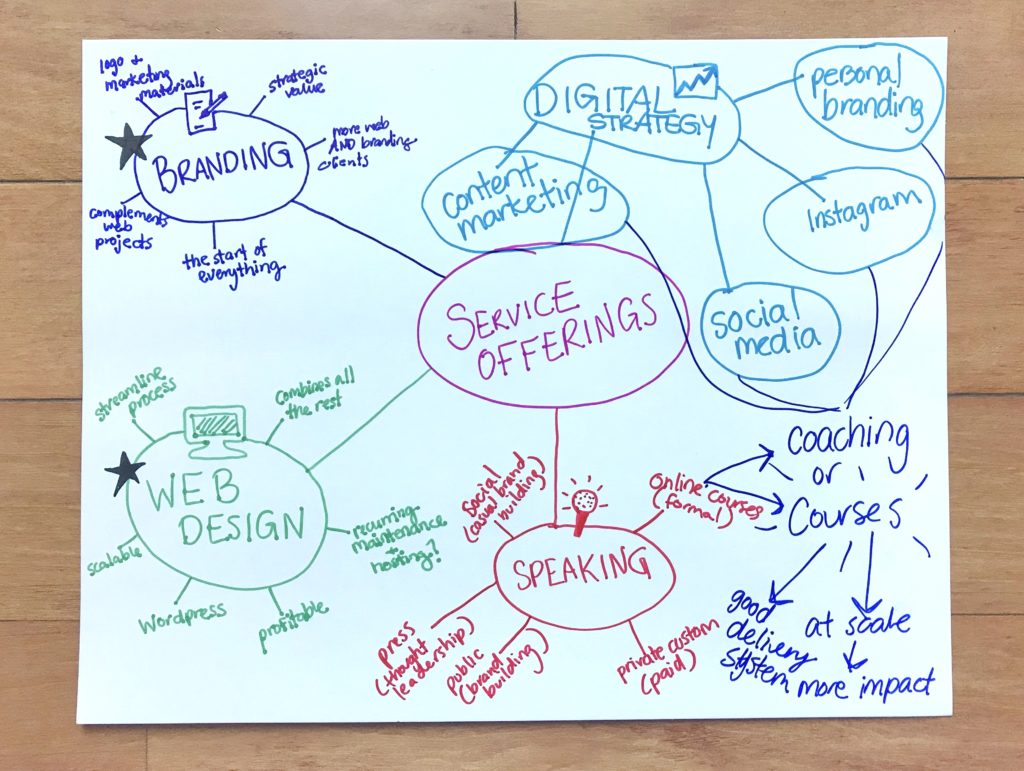 logo +
marketing
materials
strategic
value
more web
AND branding
clients
BRANDING
complements
web
projects
the start of
everything
DIGITAL
STRATEGY
personal
branding
content
marketing
Instagram
social
media
SERVICE
OFFERINGS
streamline
process
Combines all
the rest
WEB
DESIGN
recurring
maintenance
+
hosting?
scalable
Wordpress
profitable
social
(casual brand
building)
online courses
(formal)
SPEAKING
press
(thought
leadership)
public
(brand
building)
private custom
(paid)
coaching
or
Courses
good
delivery
system
at scale
more impact